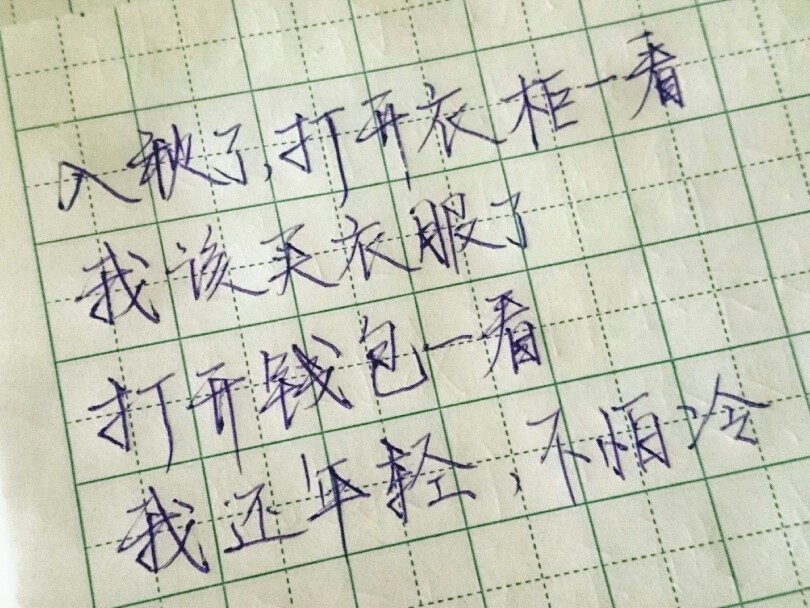 入秋了,打开衣柜一看
我该买衣服了
打开钱包一看
我还年轻,不怕冷